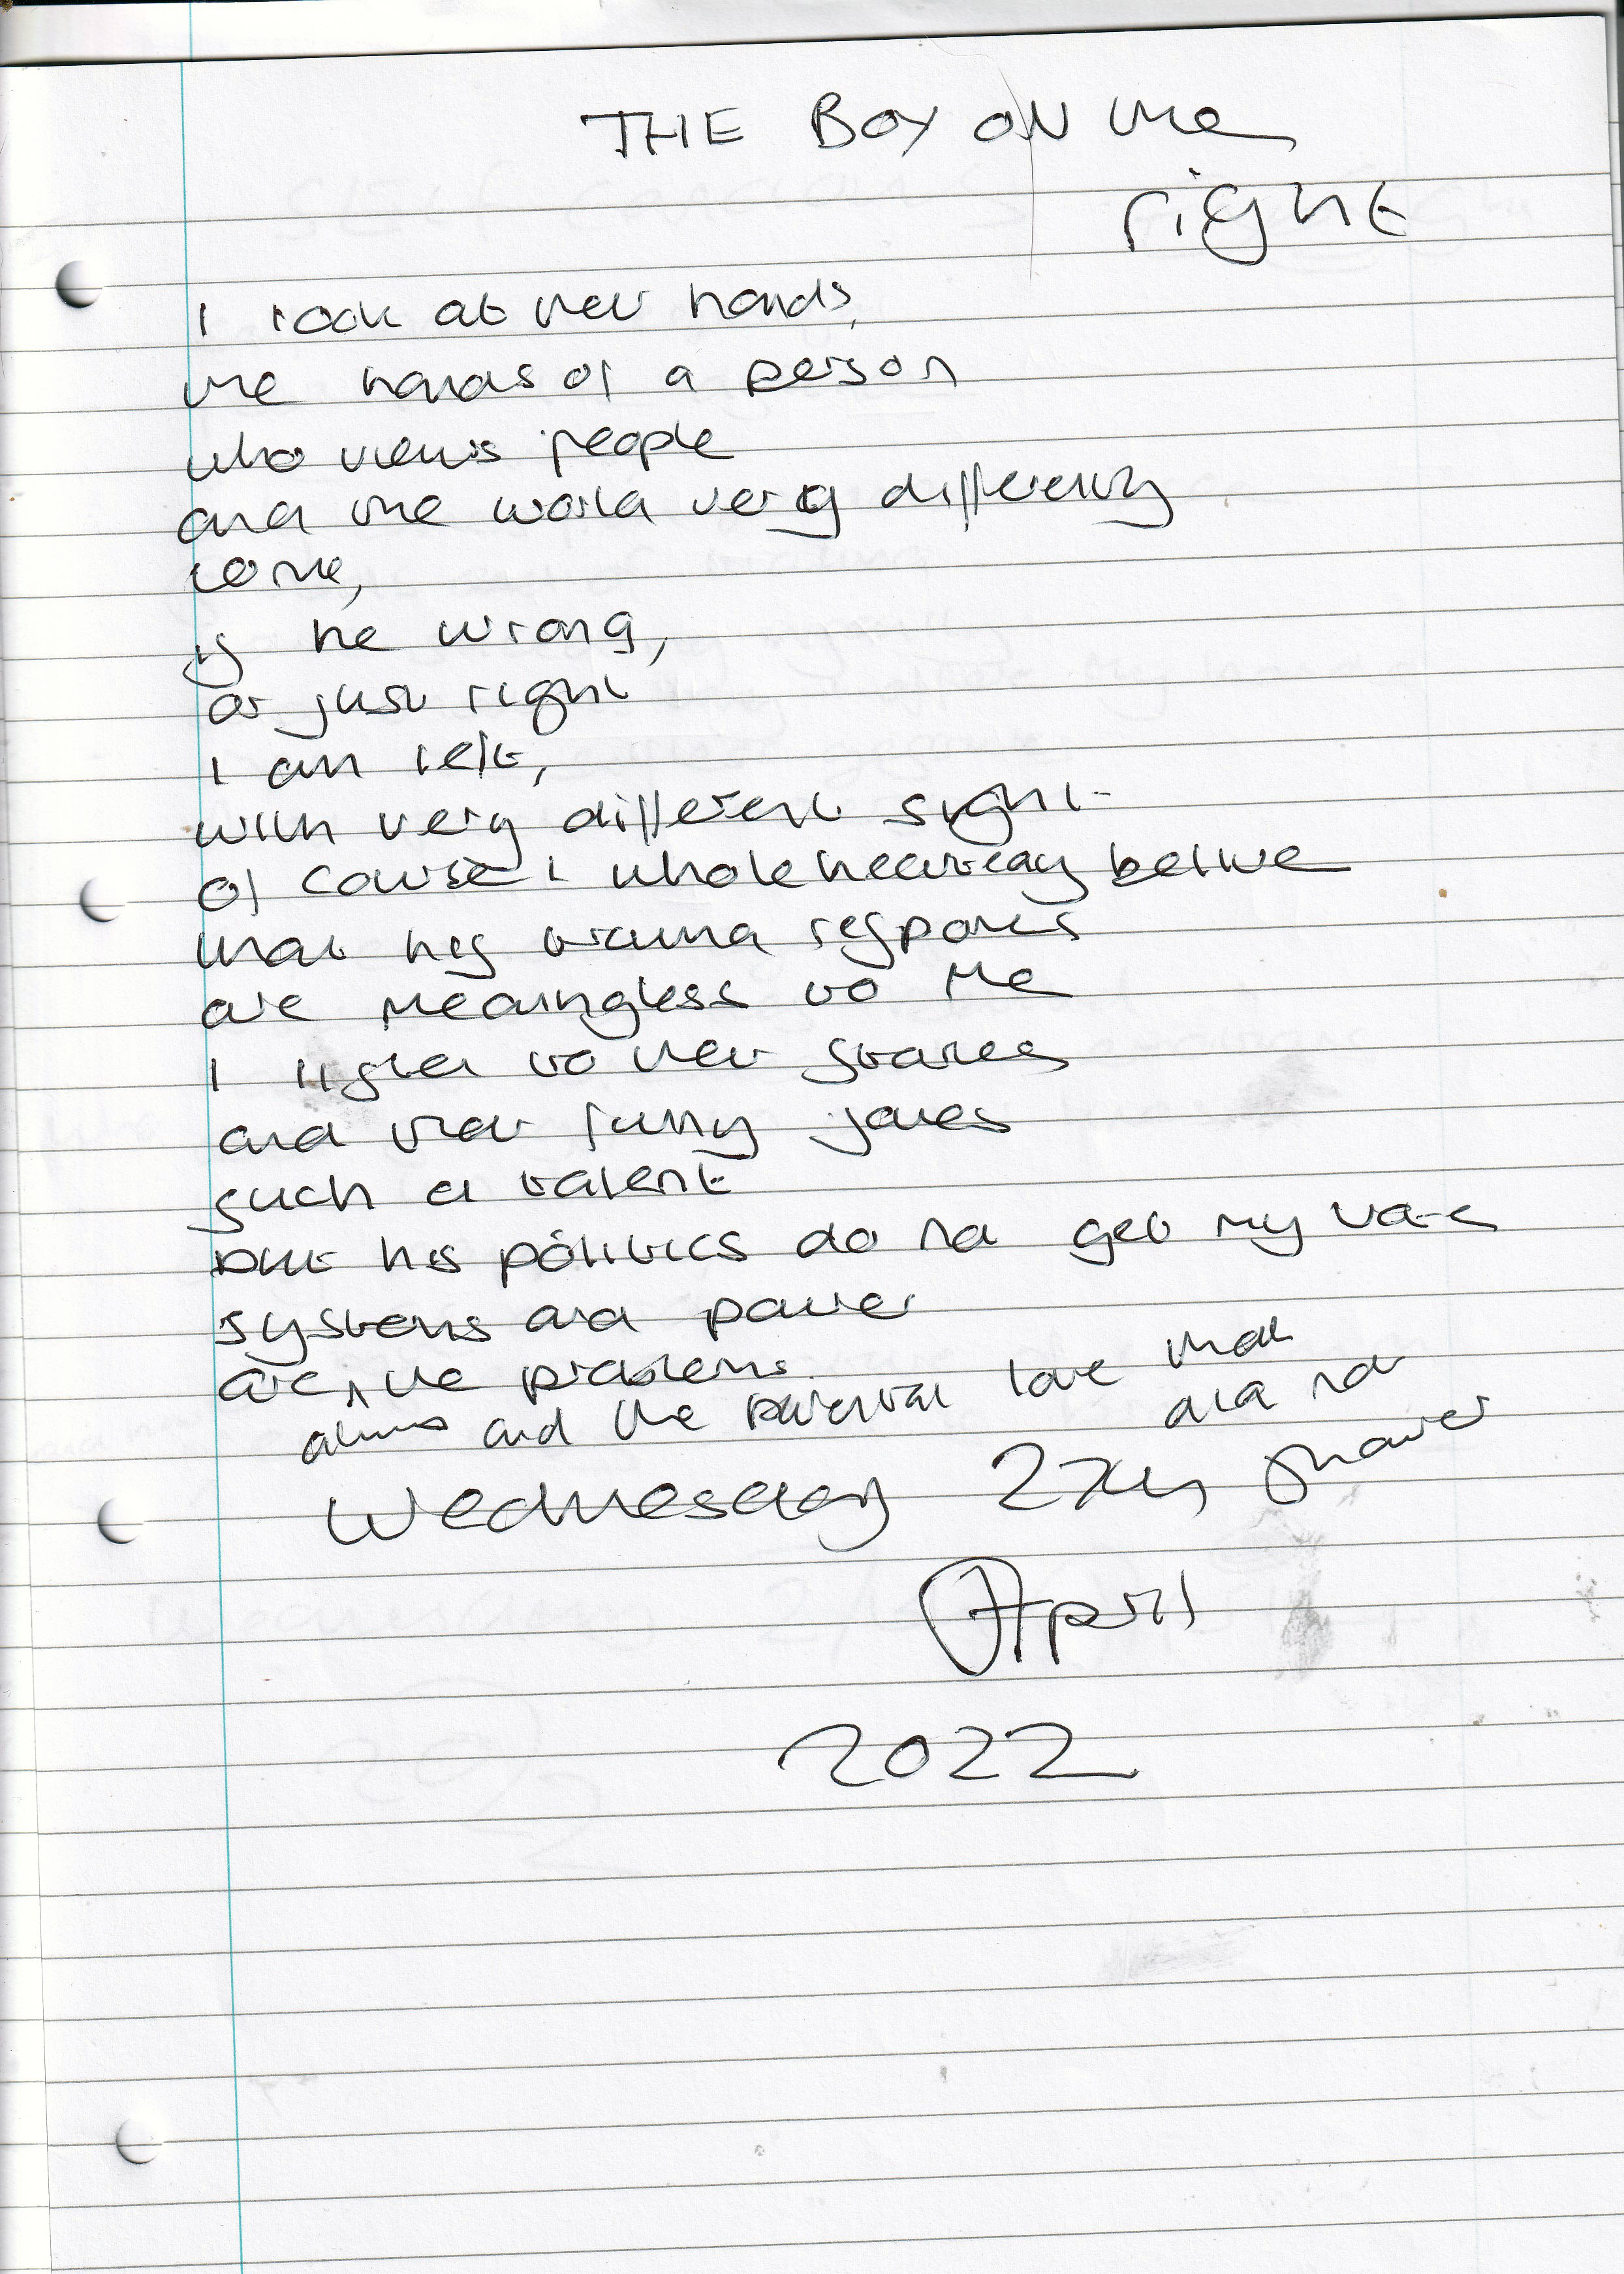 THE BOY ON the
right
I look at their hands,
the hands of a person
who views people
and the world very differently
to me,
is he wrong,
or just right
I am left,
with very different sight
of course I wholeheartedly belive
that his trauma respones
are meaningless to me
I listen to their stories
and their funny jokes
such a talent
but his politics do not get my vote
systems and power
are the problems
always and the parental love that
did not
shower
Wednesday 27th
April
2022